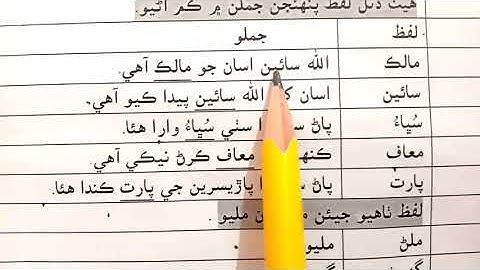 هيٺ ڏنل لفظ پنهنجن جملن ۾ ڪم آڻيو
لفظ جملو
مالڪ الله سائين اسان جو مالڪ آهي.
سائين اسان الله سائين پيدا ڪيو آهي.
سُڀاءُ پاڻ سٺي سُڀاءُ وارا هئا.
معاف معاف ڪرڻ نيڪي آهي.
پارت پاڻ پاڙيسرين جي پارت ڪندا هئا.
لفظ ٺاهيو جيئن مليو
ملڻ مليو